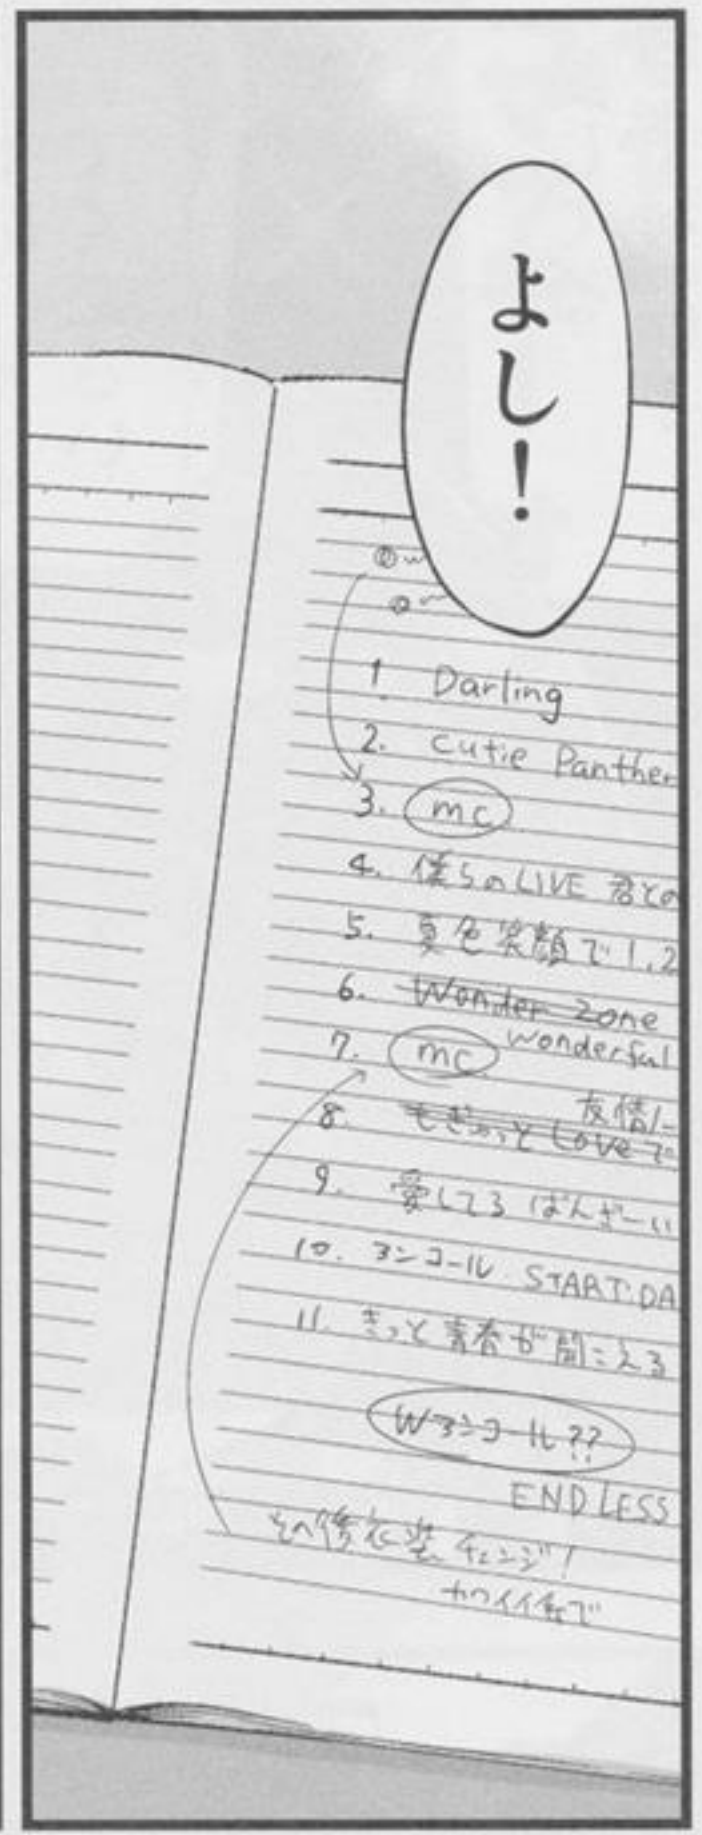 よし!
1. Darling
2. Cutie Panther
3. mc
4. 僕らのLIVE 君との
5. 夏色笑顔で1,2
6. Wonder Zone
wonderful
7. mc
友情
8. もぎゅっと Loveで
9. 愛してるばんざーい
10. アンコール START:DA
11. きっと青春が聞こえる
Wアンコール??
ENDLESS
その後衣装チェンジ!
カワイイ系で